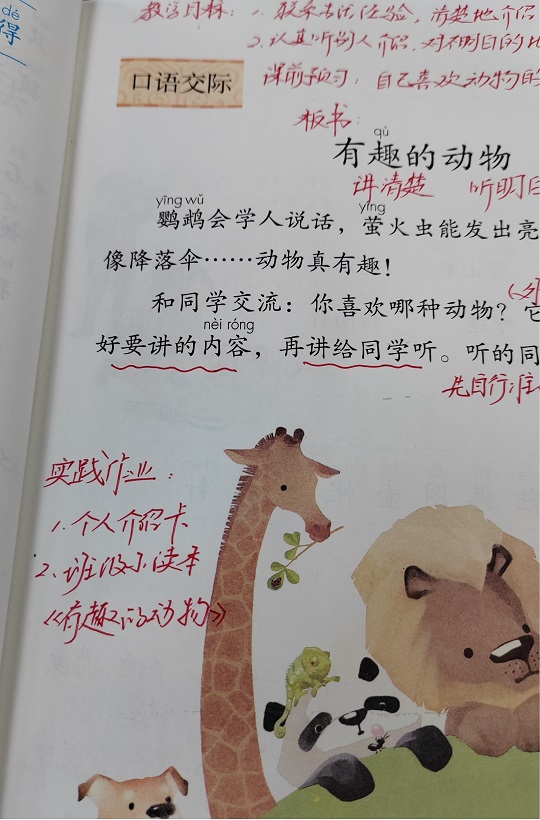 dé
得
教学目标：1.联系生活经验，清楚地介绍
2.认真听别人介绍，对不明白的地
课前预习：自己喜欢动物的
口语交际
板书：
qù
有趣的动物
讲清楚 听明白
yīng wǔ yíng
鹦鹉会学人说话，萤火虫能发出亮
像降落伞……动物真有趣！
和同学交流：你喜欢哪种动物？它
nèi róng
好要讲的内容，再讲给同学听。听的同
先自行准
实践作业：
1.个人介绍卡
2.班级小读本
《有趣的动物》